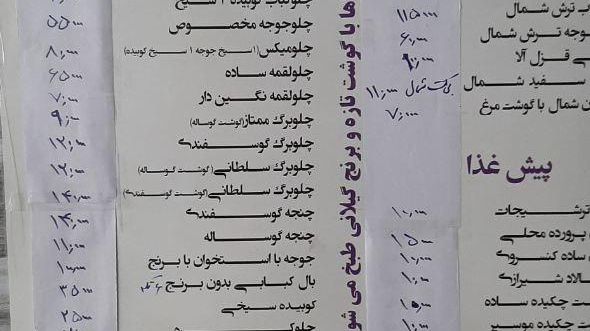 چلوجوجه مخصوص ۵۵۰۰۰
چلومیکس (۱ سیخ جوجه ۱ سیخ کوبیده) ۸۰۰۰۰
چلولقمه ساده ۶۵۰۰۰
چلولقمه نگین دار ۷۰۰۰۰
چلوبرگ ممتاز (گوشت گوساله) ۹۰۰۰۰
چلوبرگ گوسفندی ۱۲۰۰۰۰
چلوبرگ سلطانی (گوشت گوساله) ۱۲۰۰۰۰
چلوبرگ سلطانی (گوشت گوسفندی) ۱۴۰۰۰۰
چنجه گوسفندی
چنجه گوساله ۱۱۰۰۰۰
جوجه با استخوان با برنج ۱۰۰۰۰۰
بال کبابی بدون برنج ۳۵۰۰۰
کوبیده سیخی ۲۵۰۰۰
ها با گوشت تازه و برنج گیلانی طبخ می شو
ب ترش شمال ۱۱۵۰۰۰
وجه ترش شمال ۶۰۰۰۰
ی قزل آلا ۹۰۰۰۰
سفید شمال ۱۱۰۰۰۰
ن شمال با گوشت مرغ ۷۰۰۰۰
پیش غذا
ترشیجات ۱۰۰۰۰
پرورده محلی ۱۵۰۰۰
ساده کنسروی ۱۰۰۰۰
سالاد شیرازی ۱۰۰۰۰
ت چکیده ساده ۱۵۰۰۰
ت چکیده موسیر